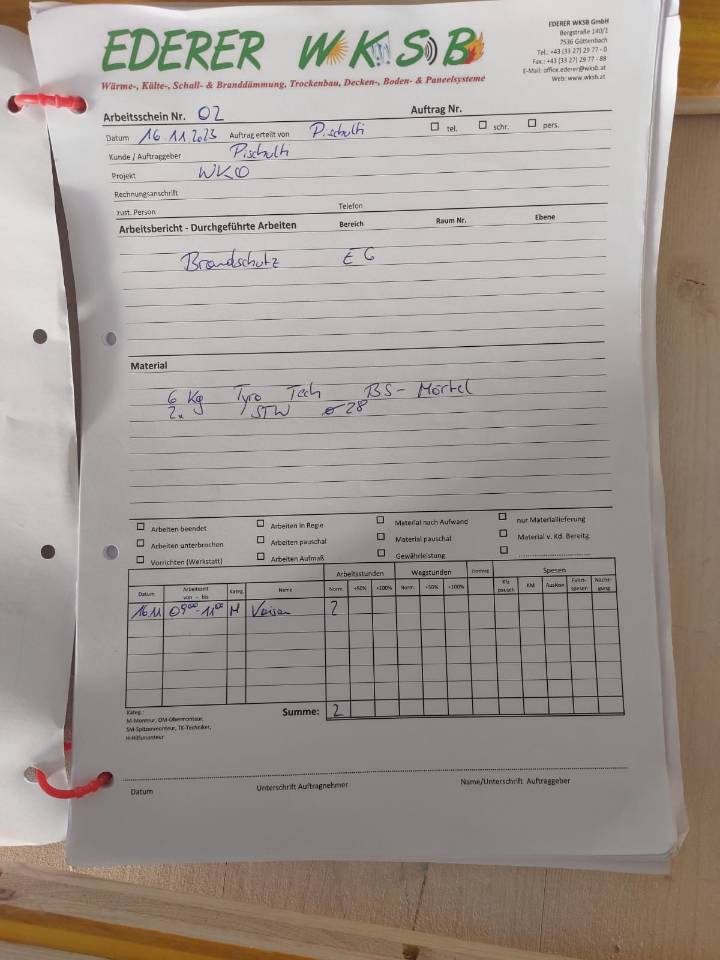 EDERER WKSB
Wärme-, Kälte-, Schall- & Branddämmung, Trockenbau, Decken-, Boden- & Paneelsysteme
EDERER WKSB GmbH
Bergstraße 140/1
7536 Güttenbach
Tel.: +43 (33 27) 29 77 - 0
Fax.: +43 (33 27) 29 77 - 88
E-Mail: office.ederer@wksb.at
Web: www.wksb.at
Arbeitsschein Nr. 02 Auftrag Nr.
Datum 16 11.2023 Auftrag erteilt von tel. schr. pers.
Kunde / Auftraggeber
Projekt WKO
Rechnungsanschrift
zust. Person Telefon
Arbeitsbericht - Durchgeführte Arbeiten Bereich Raum Nr. Ebene
Brandschutz EG
Material
6 Kg Tyro Tech BS- Mörtel
2x STW ø 28
Arbeiten beendet Arbeiten in Regie Material nach Aufwand nur Materiallieferung
Arbeiten unterbrochen Arbeiten pauschal Material pauschal Material v. Kd. Bereitg.
Vorrichten (Werkstatt) Arbeiten Aufmaß Gewährleistung
Arbeitsstunden Wegstunden Spesen
Datum Arbeitszeit von - bis Kateg. Name Norm. +50% +100% Norm. +50% +100% Kfz pausch KM Auslöse Fahrt-spesen Nächti-gung
16.11 09⁰⁰-11⁰⁰ M 2
Summe: 2
Kateg.:
M-Monteur, OM-Obermonteur,
SM-Spitzenmonteur, TK-Techniker,
H-Hilfsmonteur
Datum Unterschrift Auftragnehmer Name/Unterschrift Auftraggeber